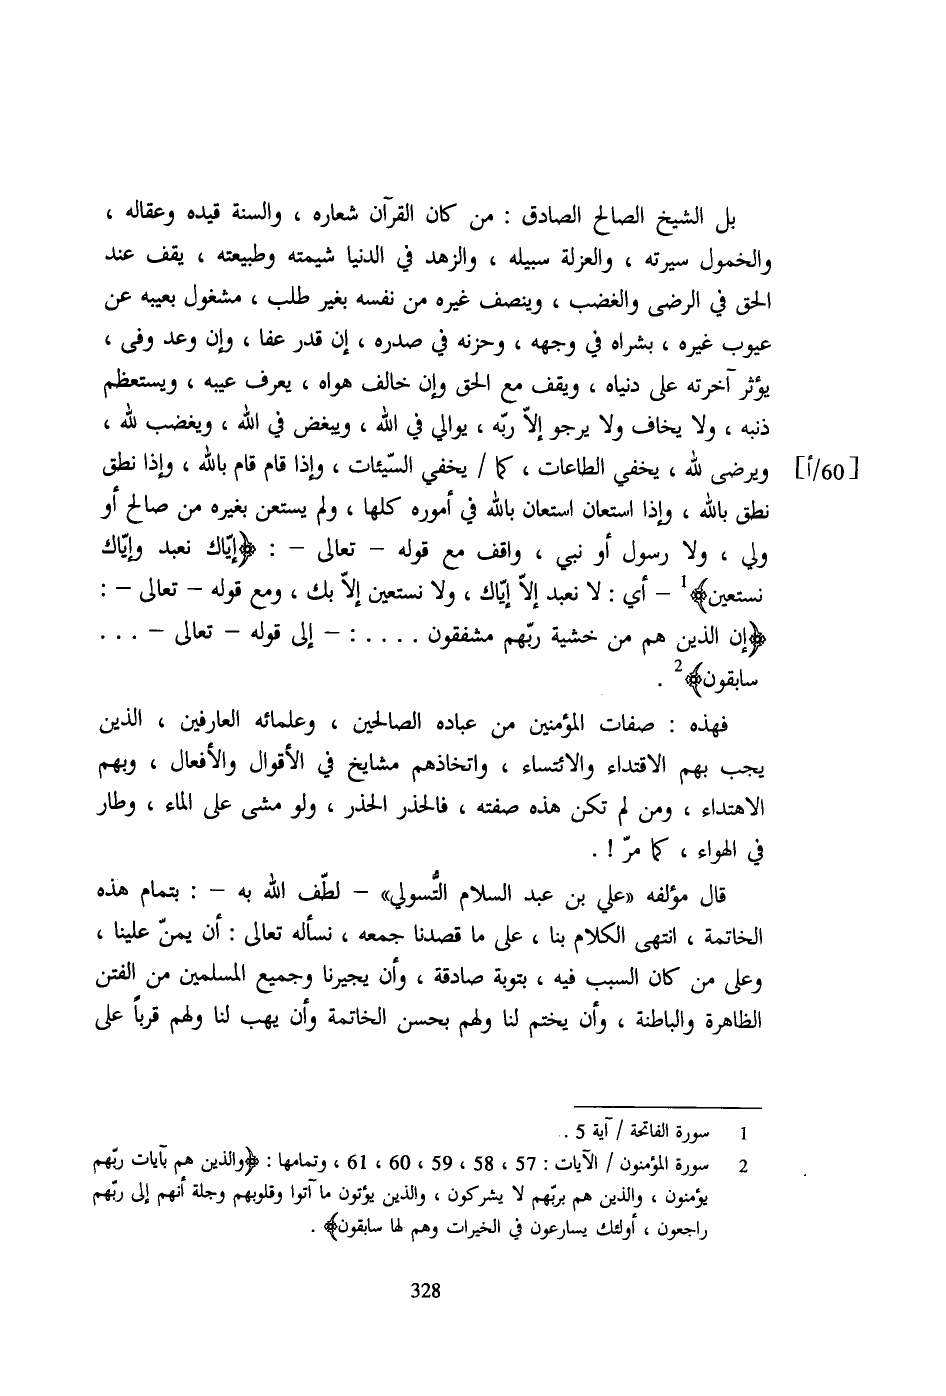 بل الشيخ الصالح الصادق : من كان القرآن شعاره ، والسنة قيده وعقاله ،
والخمول سيرته ، والعزلة سبيله ، والزهد في الدنيا شيمته وطبيعته ، يقف عند
الحق في الرضى والغضب ، وينصف غيره من نفسه بغير طلب ، مشغول بعيبه عن
عيوب غيره ، بشراه في وجهه ، وحزنه في صدره ، إن قدر عفا ، وإن وعد وفى ،
يؤثر آخرته على دنياه ، ويقف مع الحق وإن خالف هواه ، يعرف عيبه ، ويستعظم
ذنبه ، ولا يخاف ولا يرجو إلاّ ربّه ، يوالي في الله ، ويبغض في الله ، ويغضب لله ،
ويرضى لله ، يخفي الطاعات ، كما / يخفي السّيئات ، وإذا قام قام بالله ، وإذا نطق [60/أ]
نطق بالله ، وإذا استعان استعان بالله في أموره كلها ، ولم يستعن بغيره من صالح أو
ولي ، ولا رسول أو نبي ، واقف مع قوله – تعالى – : ﴿إيّاك نعبد وإيّاك
نستعين﴾1 – أي : لا نعبد إلاّ إيّاك ، ولا نستعين إلاّ بك ، ومع قوله – تعالى – :
﴿إن الذين هم من خشية ربّهم مشفقون . . . . : – إلى قوله – تعالى – . . .
سابقون﴾2 .
فهذه : صفات المؤمنين من عباده الصالحين ، وعلمائه العارفين ، الذين
يجب بهم الاقتداء والائتساء ، واتخاذهم مشايخ في الأقوال والأفعال ، وبهم
الاهتداء ، ومن لم تكن هذه صفته ، فالحذر الحذر ، ولو مشى على الماء ، وطار
في الهواء ، كما مرّ ! .
قال مؤلفه «علي بن عبد السلام التُّسولي» – لطّف الله به – : بتمام هذه
الخاتمة ، انتهى الكلام بنا ، على ما قصدنا جمعه ، نسأله تعالى : أن يمنّ علينا ،
وعلى من كان السبب فيه ، بتوبة صادقة ، وأن يجيرنا وجميع المسلمين من الفتن
الظاهرة والباطنة ، وأن يختم لنا ولهم بحسن الخاتمة وأن يهب لنا ولهم قرباً على
1 سورة الفاتحة / آية 5 .
2 سورة المؤمنون / الآيات : 57 ، 58 ، 59 ، 60 ، 61 ، وتمامها : ﴿والذين هم بآيات ربّهم
يؤمنون ، والذين هم بربّهم لا يشركون ، والذين يؤتون ما آتوا وقلوبهم وجلة أنهم إلى ربّهم
راجعون ، أولئك يسارعون في الخيرات وهم لها سابقون﴾ .
328